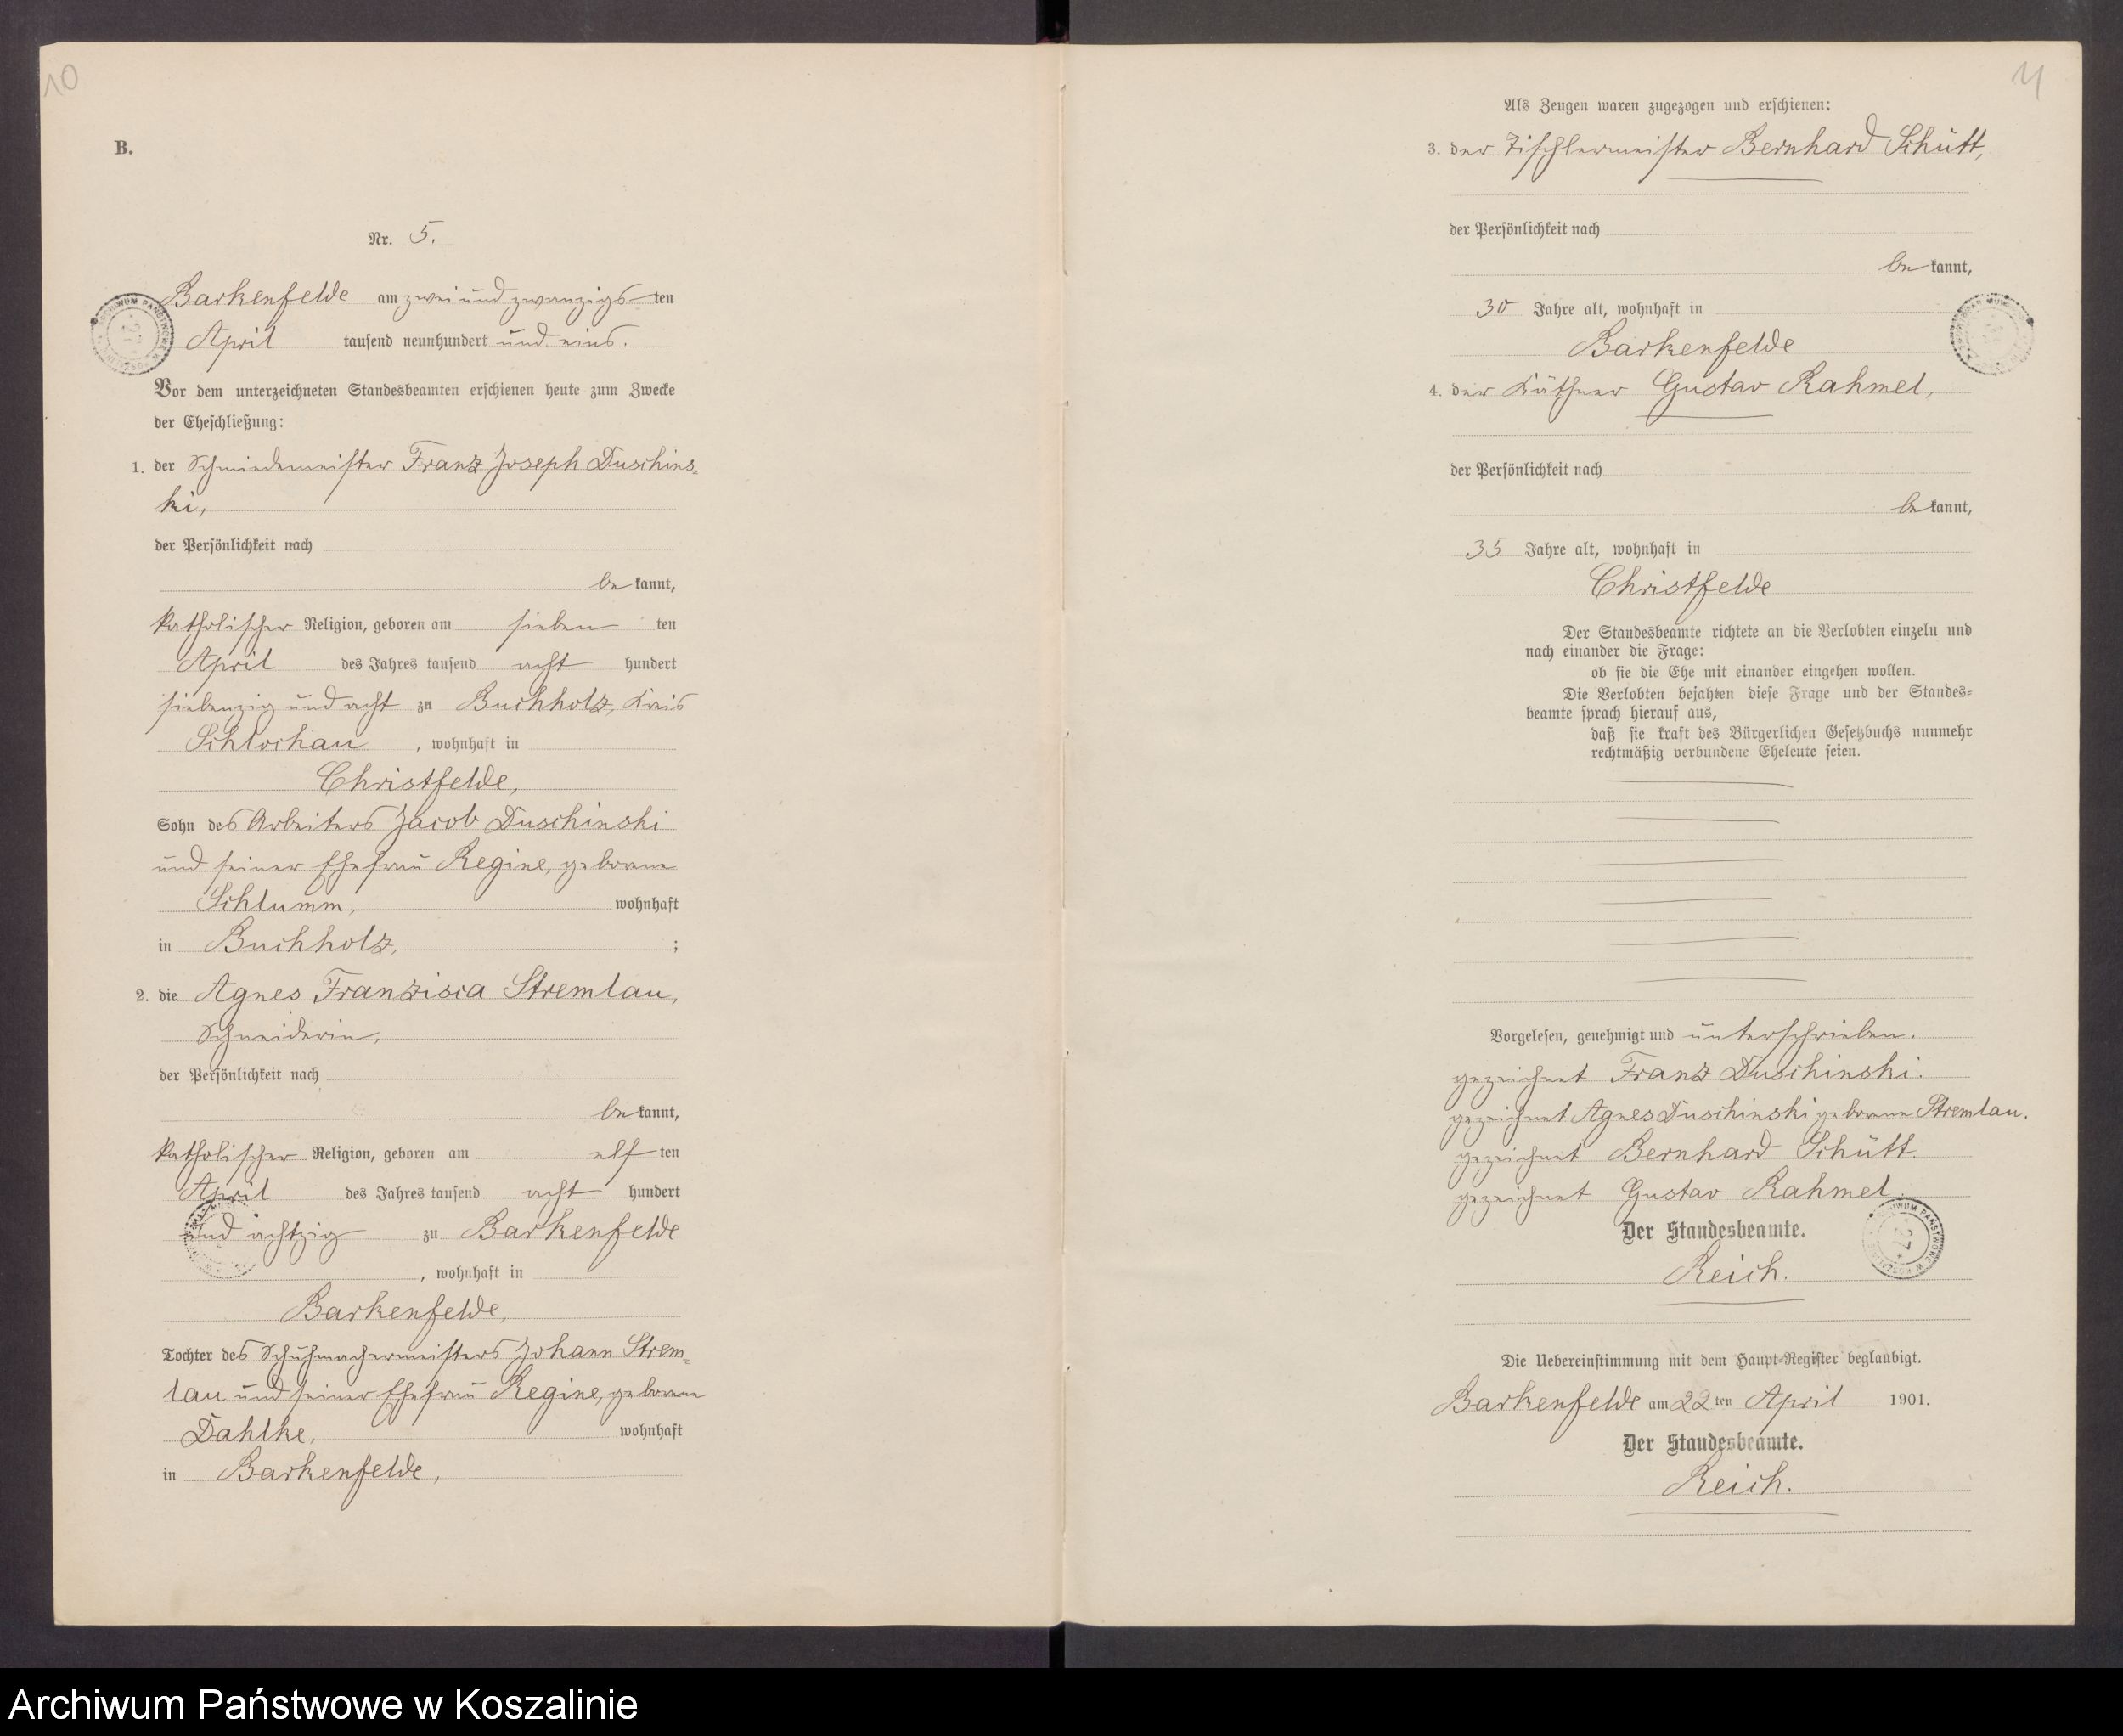 10
B.
Nr. 5.
Barkenfelde am zwei und zwanzigs ten
April tausend neunhundert und eins.
Vor dem unterzeichneten Standesbeamten erschienen heute zum Zwecke
der Eheschließung:
1. der Schmiedemeister Franz Joseph Duschins=
ki,
der Persönlichkeit nach
be kannt,
katholischer Religion, geboren am sieben ten
April des Jahres tausend acht hundert
siebenzig und acht zu Buchholz, Kreis
Schlochau, wohnhaft in
Christfelde,
Sohn des Arbeiters Jacob Duschinski
und seiner Ehefrau Regine, geborene
Schlumm, wohnhaft
in Buchholz, ;
2. die Agnes Franzisca Stremlau,
Schneiderin,
der Persönlichkeit nach
be kannt,
katholischer Religion, geboren am elf ten
April des Jahres tausend acht hundert
und achtzig zu Barkenfelde
, wohnhaft in
Barkenfelde,
Tochter des Schuhmachermeisters Johann Strem=
lau und seiner Ehefrau Regine, geborene
Dahlke, wohnhaft
in Barkenfelde,
11
Als Zeugen waren zugezogen und erschienen:
3. der Tischlermeister Bernhard Schütt,
der Persönlichkeit nach
be kannt,
30 Jahre alt, wohnhaft in
Barkenfelde
4. der Käthner Gustav Rahmel,
der Persönlichkeit nach
be kannt,
35 Jahre alt, wohnhaft in
Christfelde
Der Standesbeamte richtete an die Verlobten einzeln und
nach einander die Frage:
ob sie die Ehe mit einander eingehen wollen.
Die Verlobten bejahten diese Frage und der Standes=
beamte sprach hierauf aus,
daß sie kraft des Bürgerlichen Gesetzbuchs nunmehr
rechtmäßig verbundene Eheleute seien.
Vorgelesen, genehmigt und unterschrieben.
gezeichnet Franz Duschinski.
gezeichnet Agnes Duschinski geborene Stremlau.
gezeichnet Bernhard Schütt.
gezeichnet Gustav Rahmel.
Der Standesbeamte.
Reich.
Die Uebereinstimmung mit dem Haupt-Register beglaubigt.
Barkenfelde am 22 ten April 1901.
Der Standesbeamte.
Reich.
Archiwum Państwowe w Koszalinie